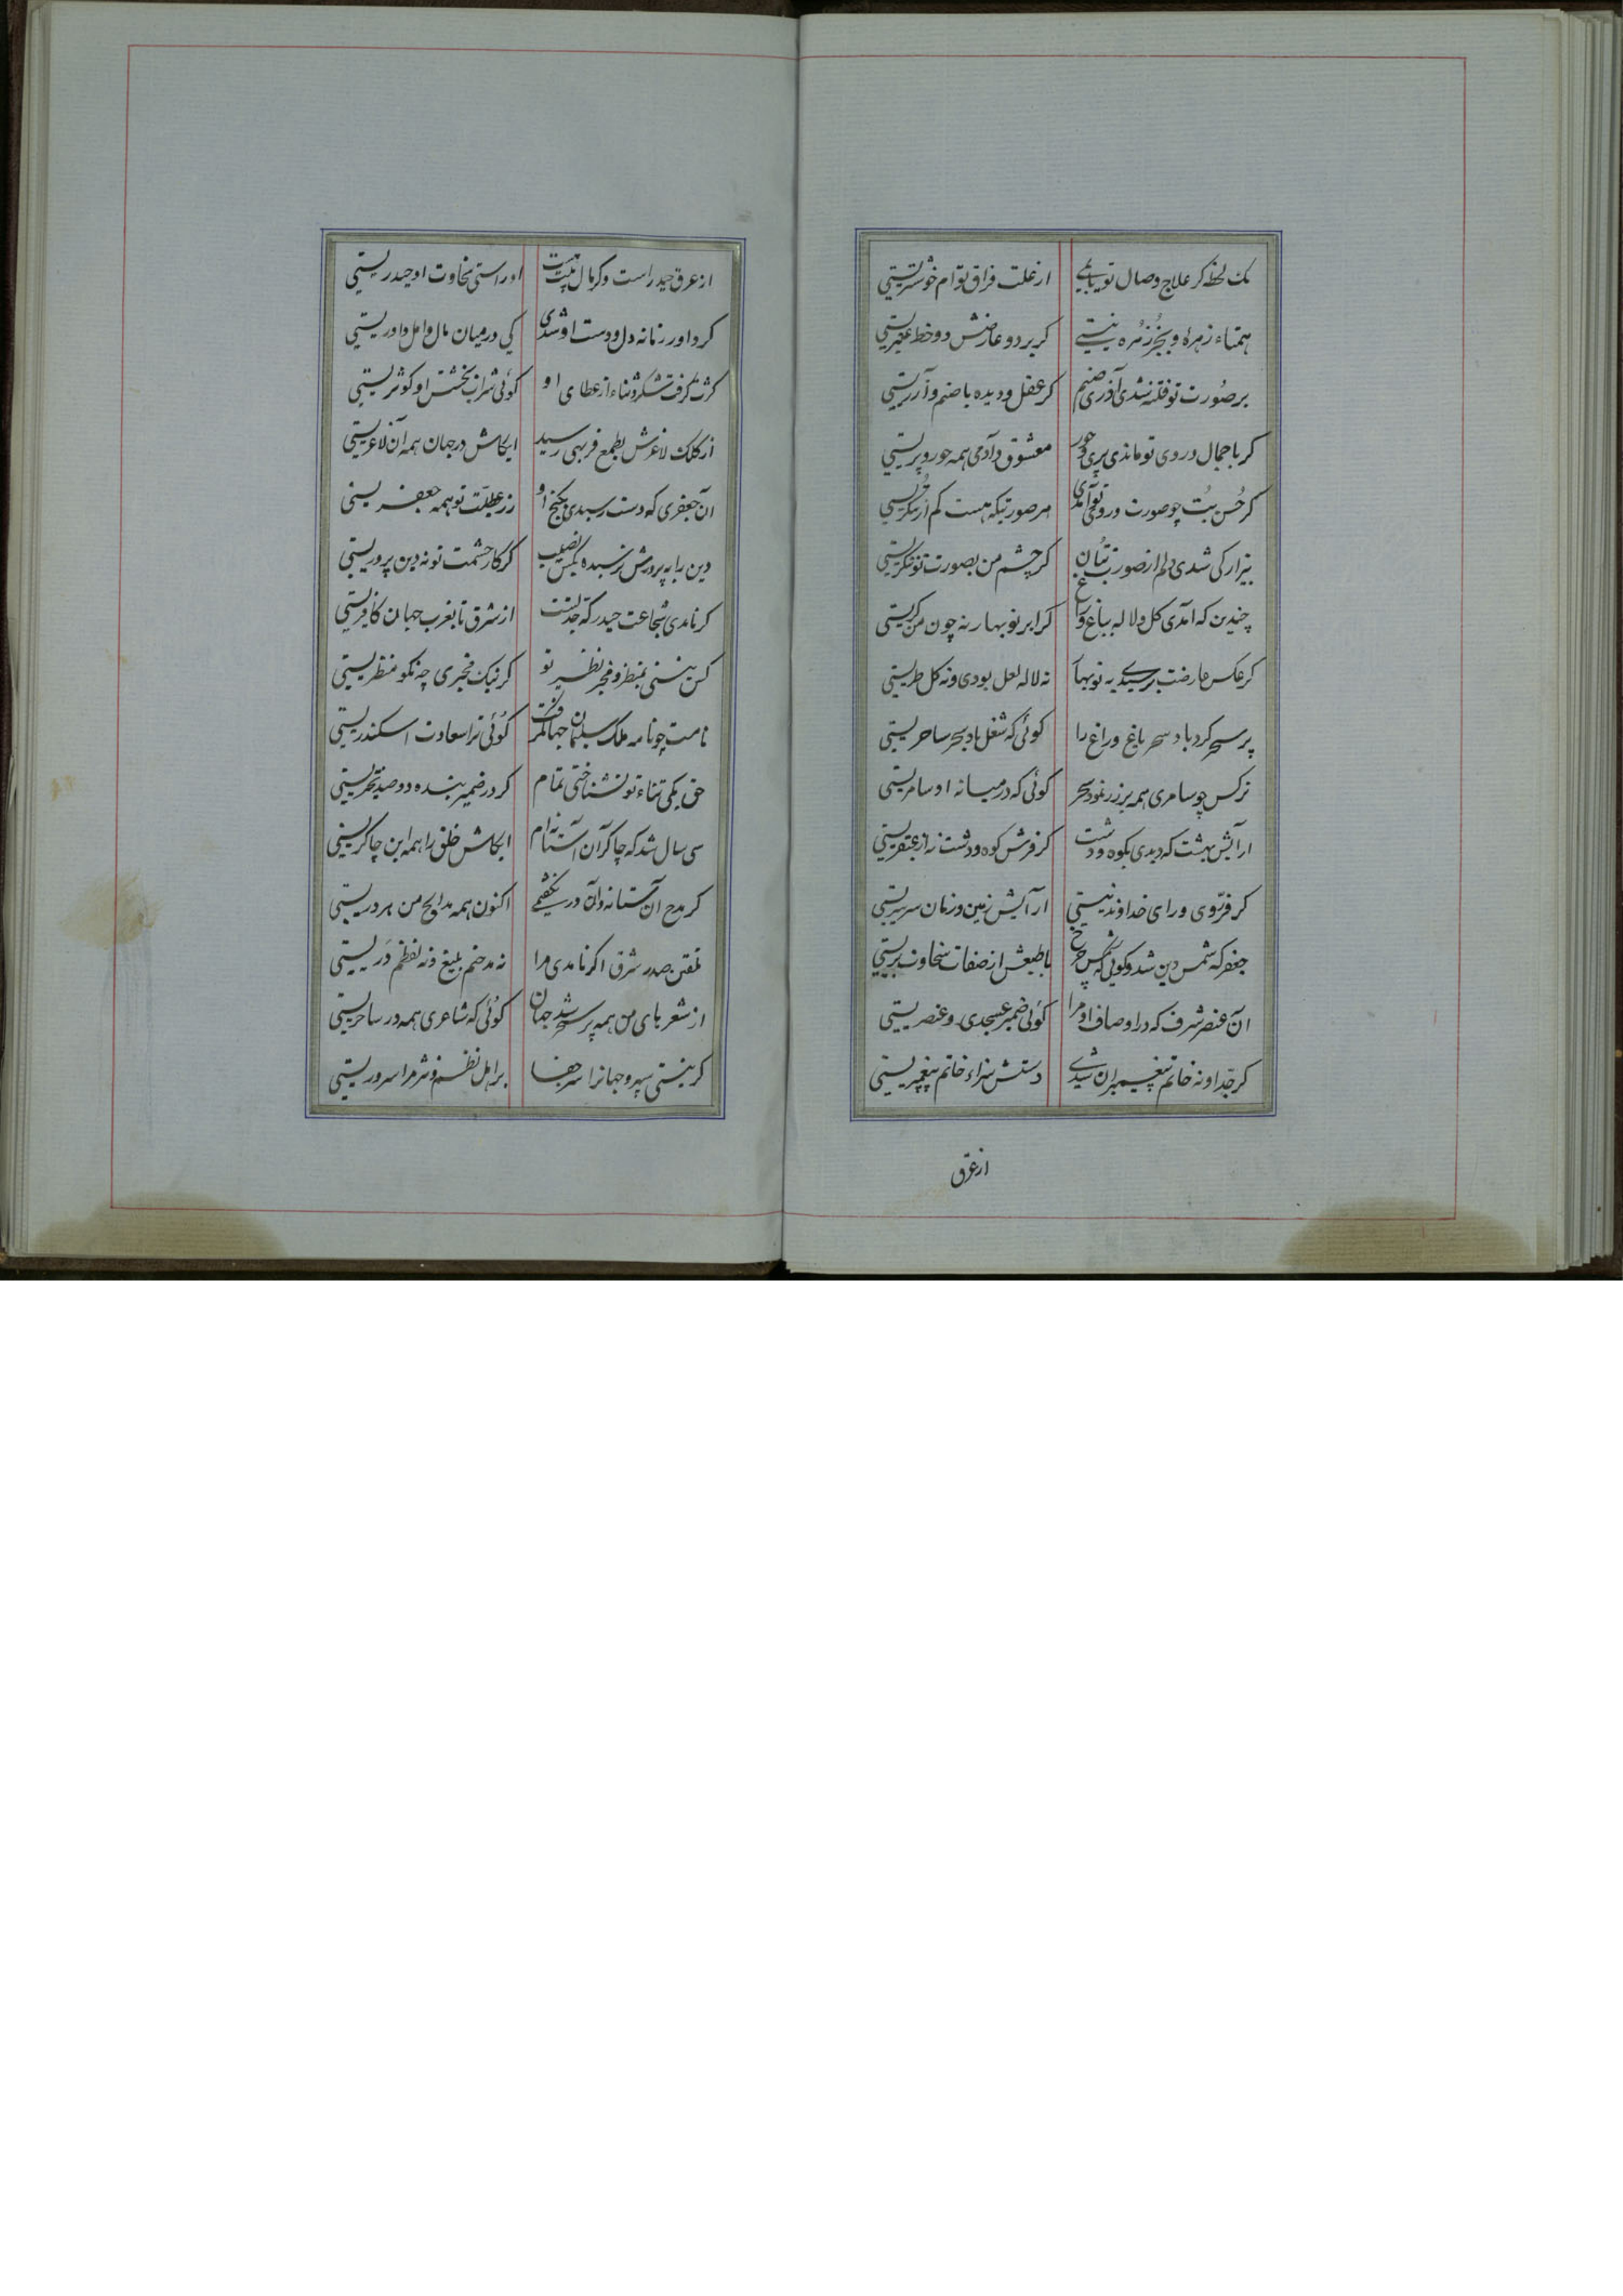 یک لحظه کر علاج وصال تو یابمی ارغلت فراق توام خوشتریستی
همتاء زهره و بجز زهره نیستی کر بر دو عارضش دو خط عنبریستی
بر صورت تو فتنه شدی آذری صنم کر عقل و دیده با صنم و آزریستی
کر با جمال و روی تو ماندی پری و حور معشوق آدمی همه حور و پریستی
کر حُسن بُت چو صورت و روی تو آمدی هر صورتیکه هست کم از بتگریستی
بیزار کی شدی دلم از صورت بتان کر چشم من بصورت تو ننکریستی
چندین که آمدی کل و لاله بباغ و راغ کر ابر نوبهار نه چون من کریستی
کر عکس عارضت نرسیدی به نوبهار نه لاله لعل بودی و نه کل طریستی
پر سحر کرد باد سحر باغ و راغ را کوئی که شغل باد سحر ساحریستی
نرکس چو سامری همه بر زر نمود سحر کوئی که در میانه او سامریستی
ارآیش بهشت که دیدی بکوه و دشت کر فرش کوه و دشت نه از عبقریستی
کر فرّ وی و رای خداوند نیستی ار آیش زمین و زمان سرسریستی
جعفر که شمس دین شد و کوئی که شمس چرخ با طبعش از صفات سخاوت بریستی
آن عنصر شرف که در اوصاف او مرا کوئی ضمیر عسجدی و عنصریستی
کر جّد او نه خاتم پیغمبران شدی دستش سزاء خاتم پیغمبریستی
از عرق
از عرق حیدر است و کر مال نیست هست او راستی سخاوت او حیدریستی
کر داور زمانه دل و دست او شدی کی در میان مال و امل داوریستی
کثرت کرفت شکر و ثناء از عطای او کوئی شراب بخشش او کوثریستی
از کلک لاغرش بطمع فربهی رسید ایکاش در جهان همه آن لاغریستی
آن جعفری که دست رسیدی بکنج او زر عطیّت تو همه جعفریستی
دین را به پرورش نرسیده بکس نصیب کر کار حشمت تو نه دین پروریستی
کر نامدی شجاعت حیدر که جدّ تست از شرق تا بغرب جهان کافریستی
کس نیستی بمنظر و مخبر نظیر تو کر نیک مخبری چه نکو منظریستی
نامت چو نامه ملک سلیمان جهان کرفت کوُئی ترا سعادت اسکندریستی
حق یکی ثناء تو نشناختی تمام کر در ضمیر بنده دو صد بحتریستی
سی سال شد که چاکر آن آستانه ام ایکاش خلق را همه این چاکریستی
کر مدح آن آستانه و آن در نکفتمی اکنون همه مدایح من بر دریستی
تلقین صدر شرق اکر نامدی مرا نه مدحتم بلیغ و نه لفظم دَریستی
از شعر های من همه پر سحر شد جهان کوُئی که شاعری همه در ساحریستی
کر نیستی سپهر و جهانرا سر جفا بر اهل نظم و نثر مرا سروریستی